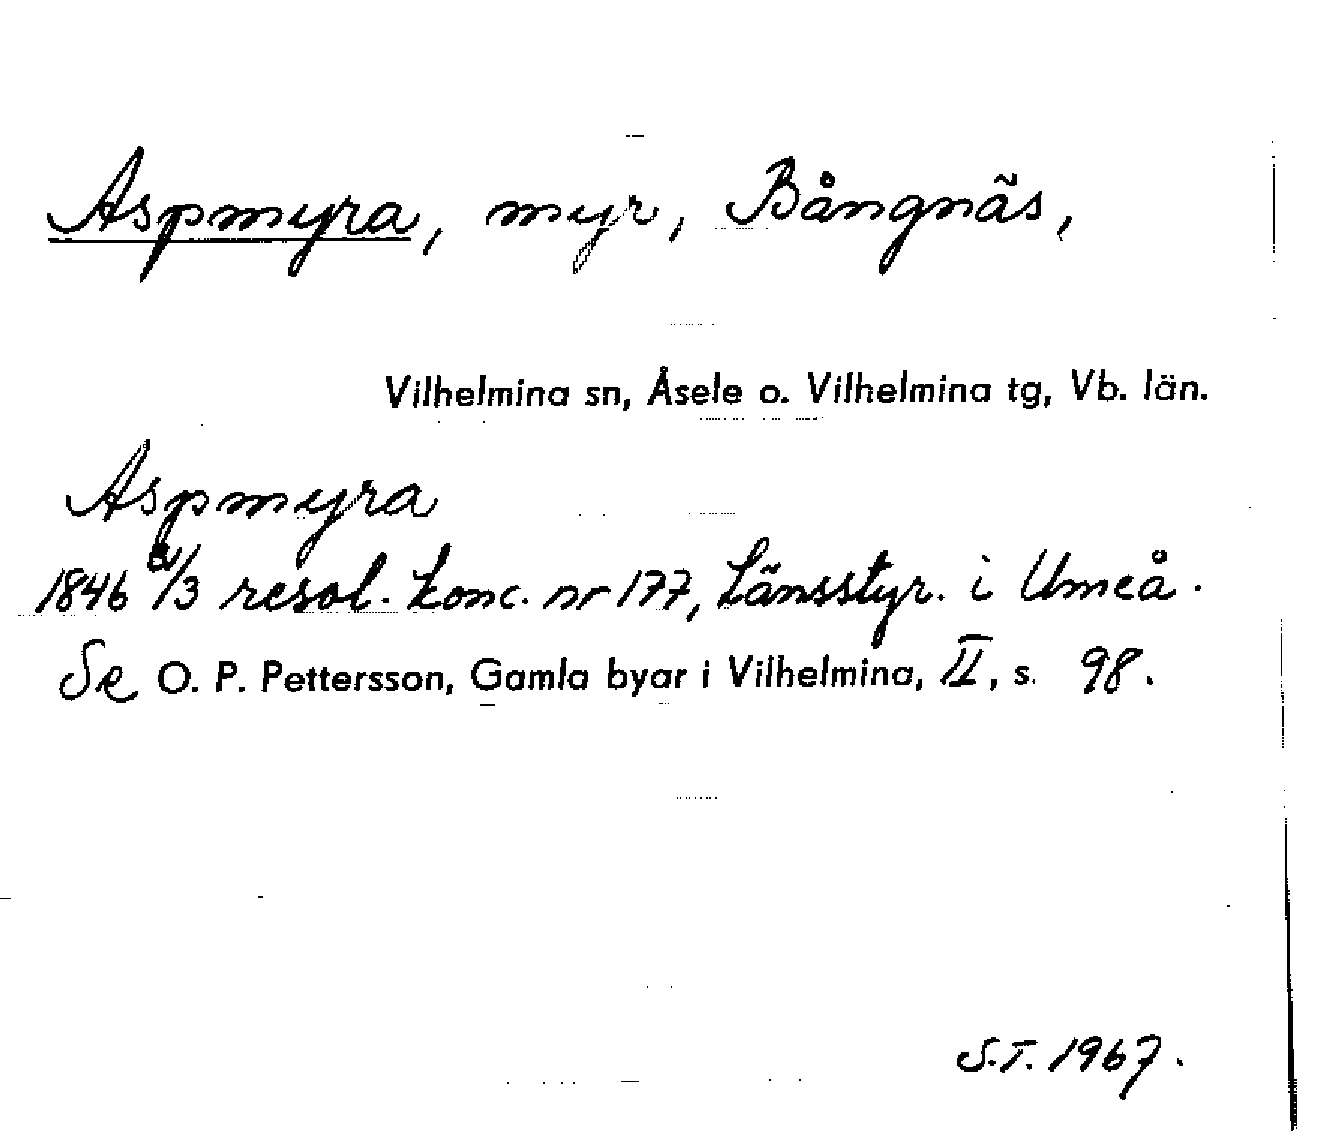 Aspmyra, myr, Bångnäs,
Vilhelmina sn, Åsele o. Vilhelmina tg, Vb. län.
Aspmyra
1846 /3 resol. konc. nr 177, Länsstyr. i Umeå.
Se O. P. Pettersson, Gamla byar i Vilhelmina, II, s. 98.
S.T. 1967.